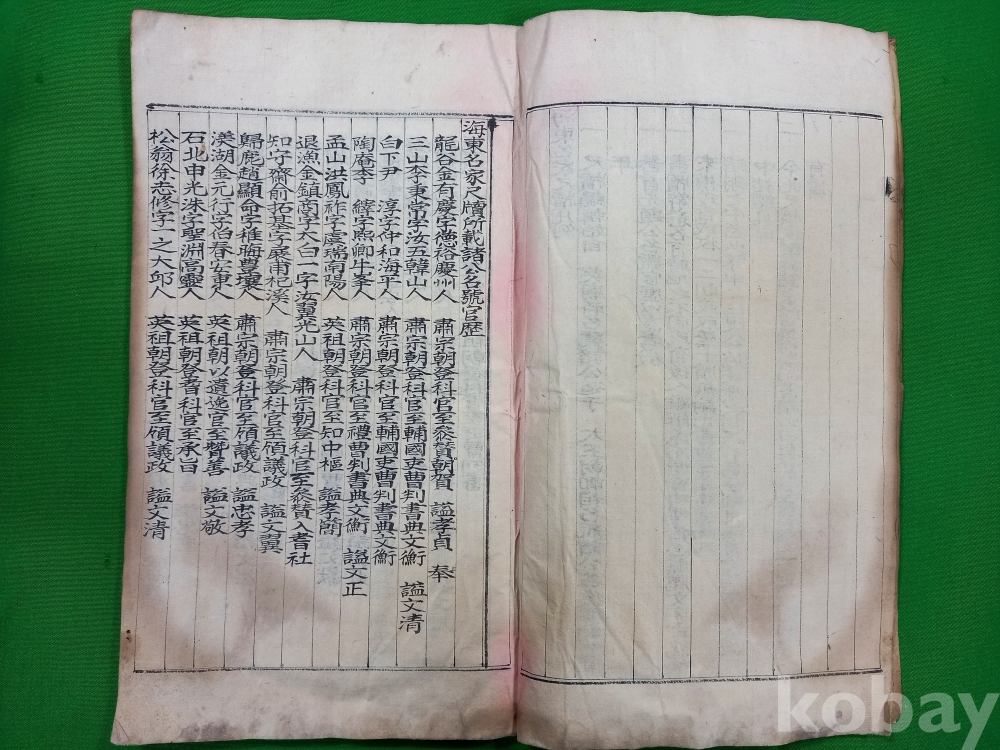 海東名家尺牘所載諸公名號官歷
龍谷金有慶字德裕慶州人 肅宗朝登科官至參贊朝賀 諡孝貞 奉
三山李秉常字汝五韓山人 肅宗朝登科官至輔國吏曹判書典文衡 諡文清
白下尹 淳字仲和海平人 肅宗朝登科官至輔國吏曹判書典文衡
陶庵李 縡字熙卿牛峯人 肅宗朝登科官至禮曹判書典文衡 諡文正
孟山洪鳳祚字虞瑞南陽人 英祖朝登科官至知中樞 諡孝簡
退漁金鎮商字太白一字汝翼光山人 肅宗朝登科官至參贊入耆社
知守齋俞拓基字展甫杞溪人 肅宗朝登科官至領議政 諡文翼
歸鹿趙顯命字稚晦豊壤人 肅宗朝登科官至領議政 諡忠孝
渼湖金元行字伯春安東人 英祖朝以遺逸官至贊善 諡文敬
石北申光洙字聖淵高靈人 英祖朝登耆科官至承旨
松翁徐志修字一之大邱人 英祖朝登科官至領議政 諡文清
kobay